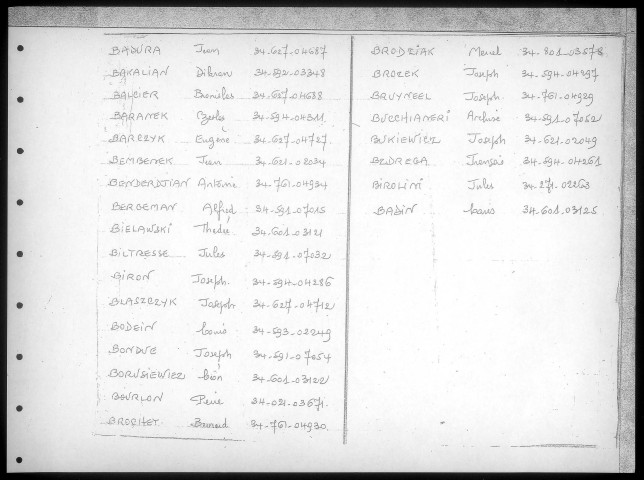 BADURA Jean 34-627-04687
BAKALIAN Dikran 34-594-03348
BALCER Bronislas 34-627-04688
BARANEK Czeslas 34-594-04311
BARCZYK Eugène 34-627-04727
BEMBENEK Jean 34-621-02034
BENDERDJIAN Antoine 34-761-04934
BERGEMAN Alfred 34-591-07015
BIELAWSKI Thadée 34-601-03121
BILTRESSE Jules 34-591-07032
BIRON Joseph 34-594-04286
BLASZCZYK Joseph 34-627-04712
BODEIN Louis 34-593-02249
BONDUE Joseph 34-591-07054
BORUSIEWIEZ Léon 34-601-03122
BOURLON Pierre 34-021-03671
BROCHET Bernard 34-761-04930
BRODZIAK Marcel 34-801-03578
BROZEK Joseph 34-594-04397
BRUYNEEL Joseph 34-761-04929
BUECHIANERI 34-591-07052
BUKIEWIEZ Joseph 34-621-02049
BZDREGA François 34-594-04261
BIROLINI Jules 34-271-02263
BABIN Louis 34-601-03125